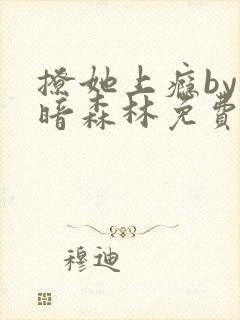 撩她上瘾by
暗森林免费
穆迪